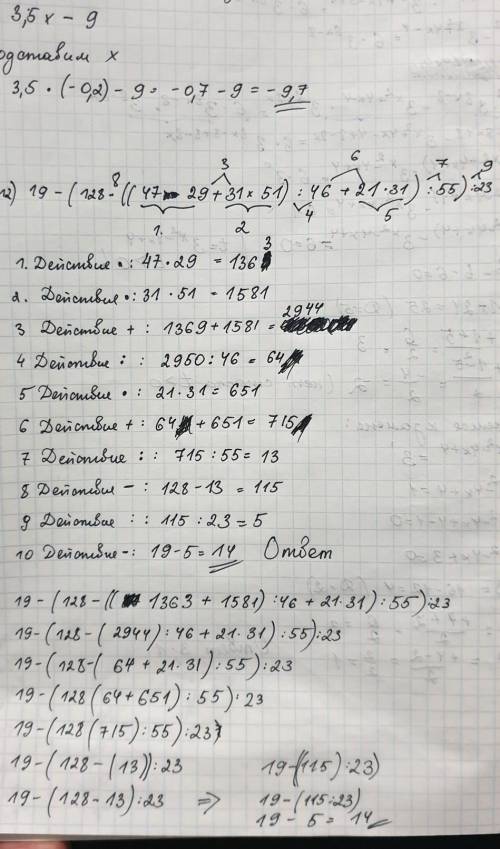 3,5x - 9
одставим x
3,5 · (-0,2) - 9 = -0,7 - 9 = -9,7
3 6 7 9
8
12) 19 - (128 - ((47 · 29 + 31 × 51) : 46 + 21 · 31) : 55) : 23
1. 2 4 5
1. Действие · : 47 · 29 = 1363
2. Действие · : 31 · 51 = 1581
2944
3 Действие + : 1369 + 1581 =
4 Действие : : 2950 : 46 = 64
5 Действие · : 21 · 31 = 651
6 Действие + : 64 + 651 = 715
7 Действие : : 715 : 55 = 13
8 Действие - : 128 - 13 = 115
9 Действие : : 115 : 23 = 5
10 Действие - : 19 - 5 = 14 Ответ
19 - (128 - ((1363 + 1581) : 46 + 21 · 31) : 55) : 23
19 - (128 - (2944) : 46 + 21 · 31) : 55) : 23
19 - (128 - (64 + 21 · 31) : 55) : 23
19 - (128 (64 + 651) : 55) : 23
19 - (128 (715) : 55) : 23
19 - (128 - (13)) : 23 19 - ((115) : 23)
19 - (128 - 13) : 23 => 19 - (115 : 23)
19 - 5 = 14